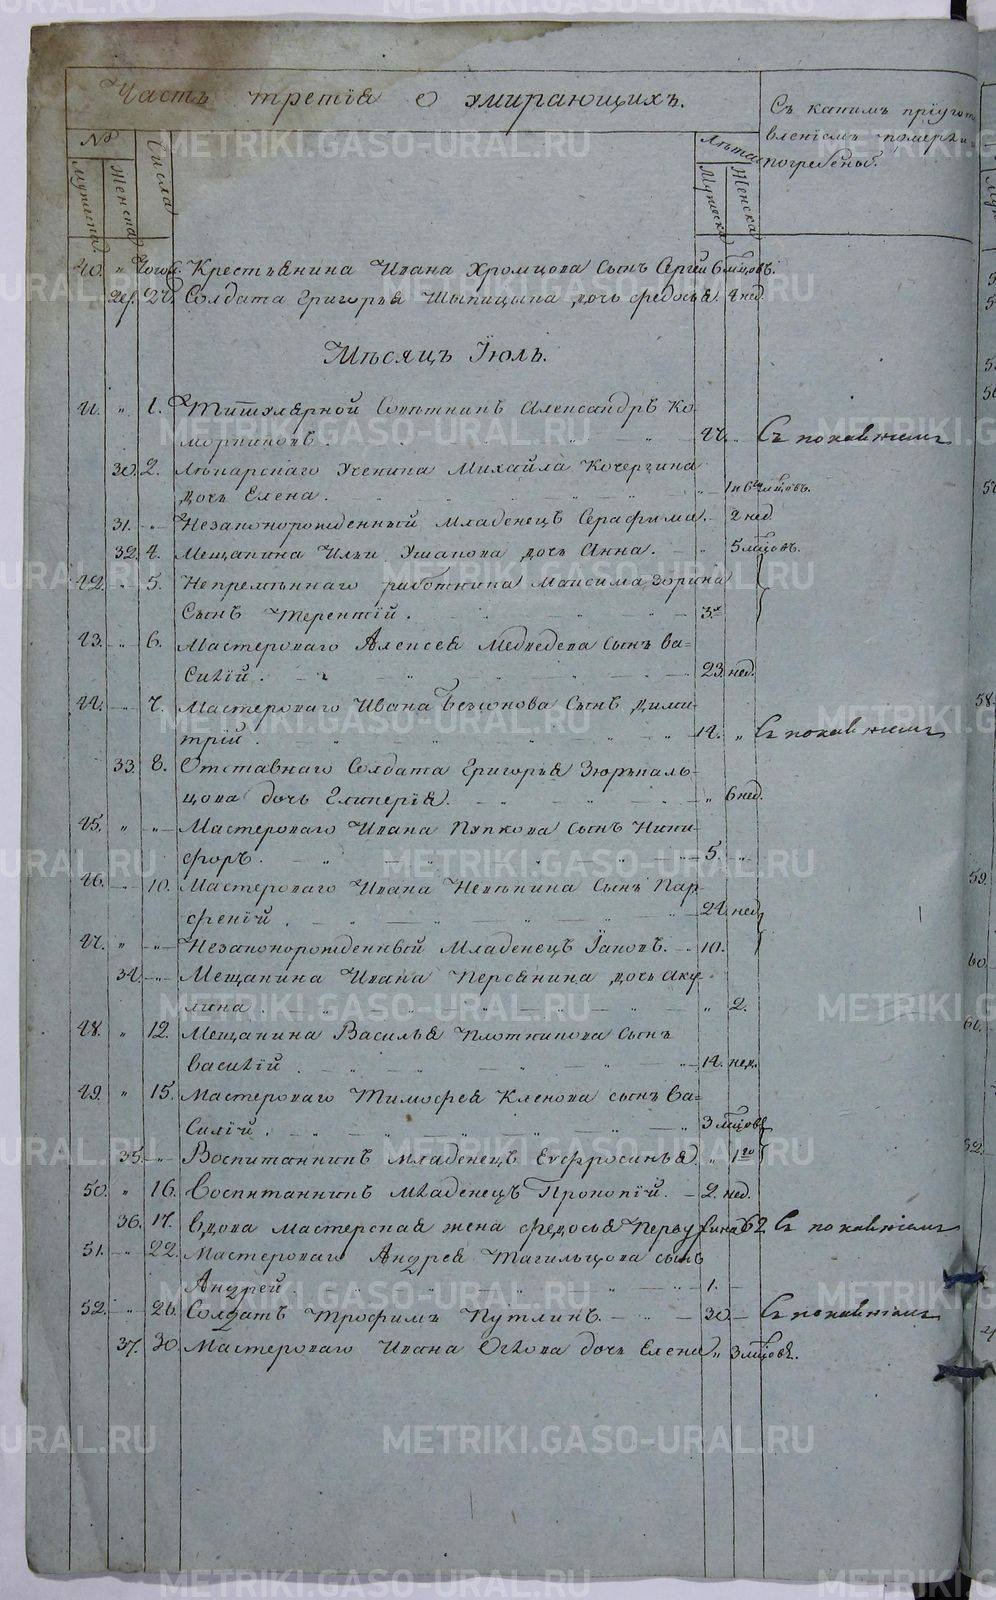 Часть третія о умирающихъ.
Съ какимъ пріуго-
влѣніемъ померъ и
погребены.
№
Мужеска.
Женска.
Числа
Лѣта
Мужеска
Женска
40. " Того 6. Крестьянина Ивана Хромцова сынъ Сергій 6 мцовъ.
29. 27. Солдата Григорья Шыпицына дочь Федосья. 4 нед.
Мѣсяцъ Іюль.
41. " 1. Титулярной Совѣтникъ Александръ Ко-
марниковъ. 47. " Съ покаяніемъ
30. 2. Лѣкарскаго Ученика Михайла Кочергина
дочь Елена. " 1 и 6 мцовъ.
31. " Незаконорожденный младенецъ Серафима. 2 нед.
32. 4. Мещанина Ильи Ушакова дочь Анна. " 5 мцовъ.
42. " 5. Непремѣннаго работника Максима Зорина
Сынъ Терентій. 3.
43. " 6. Мастероваго Алексея Медведева сынъ Ва=
силій. 23. нед.
44. " 7. Мастероваго Ивана Безсонова Сынъ Дими-
трій. 14. " Съ покаяніемъ
33. 8. Отставнаго Солдата Григорья Зюрѣкаль-
цова дочь Гликерія. " 6 нед.
45. " " Мастероваго Ивана Пупкова сынъ Ники-
форъ. 5. "
46. " 10. Мастероваго Ивана Невѣкина Сынъ Пар-
феній. 24. нед.
47. " " Незаконорожденный Младенецъ Іаковъ. 10.
34. " Мещанина Ивана Персянина дочь Аку-
лина. " 2.
48. " 12. Мещанина Василья Плотникова сынъ
Василій. 14. нед.
49. " 15. Мастероваго Тимофея Кленова сынъ Ва=
силій. 3 мцовъ
35. " Воспитанникъ младенецъ Евфросинья. " 1го
50. " 16. Воспитанникъ младенецъ Прокопій. 2. нед.
36. 17. Вдова мастерская жена Федосья Первухина 62 Съ покаяніемъ
51. " 22. Мастероваго Андрея Тагильцова сынъ
Андрей. 1.
52. " 26. Солдатъ Трофимъ Путлинъ. 30. Съ покаяніемъ
37. 30. Мастероваго Ивана Огкова дочь Елена " 3 мцовъ.
METRIKI.GASO-URAL.RU